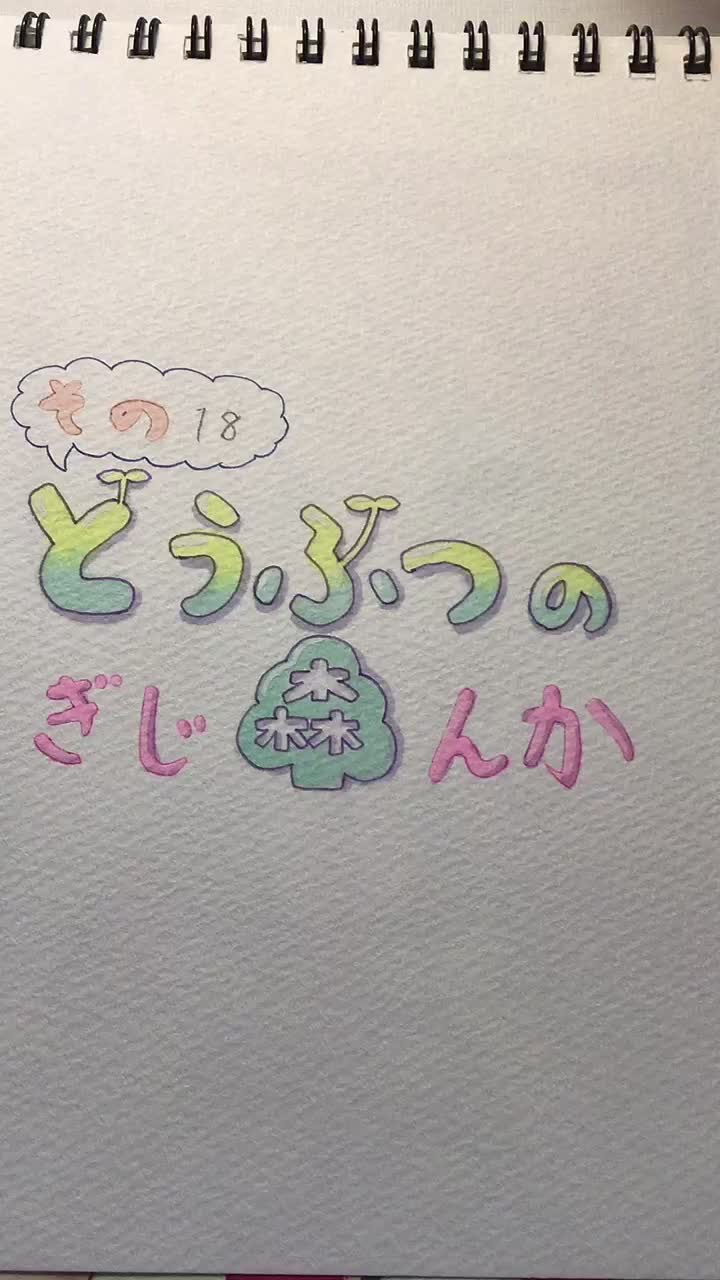 その18
どうぶつの
ぎじ森んか